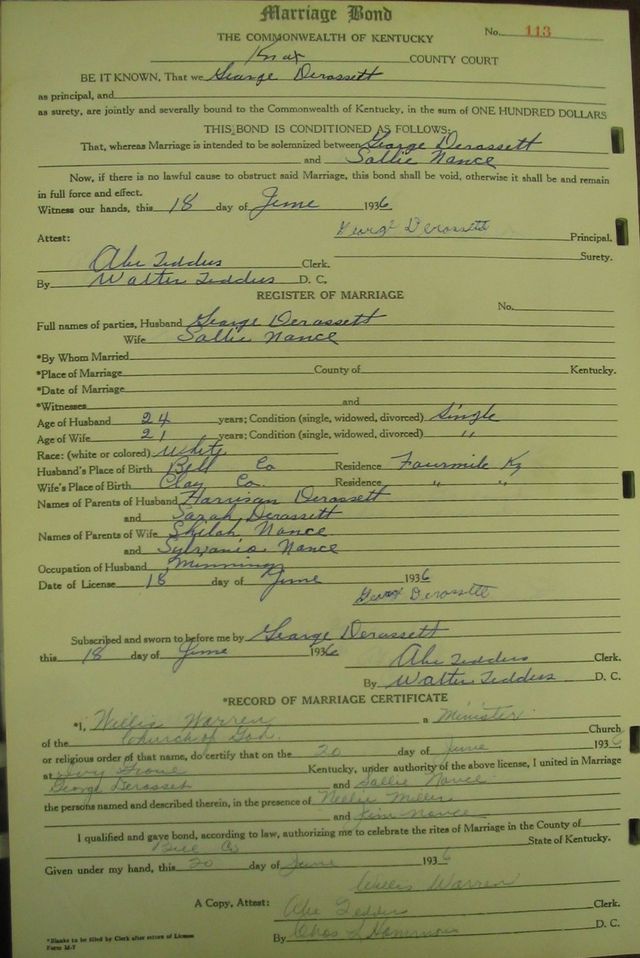 Marriage Bond
THE COMMONWEALTH OF KENTUCKY No. 113
Knox COUNTY COURT
BE IT KNOWN, That we George Derossett
as principal, and
as surety, are jointly and severally bound to the Commonwealth of Kentucky, in the sum of ONE HUNDRED DOLLARS
THIS BOND IS CONDITIONED AS FOLLOWS:
That, whereas Marriage is intended to be solemnized between George Derossett
and Sallie Nance
Now, if there is no lawful cause to obstruct said Marriage, this bond shall be void, otherwise it shall be and remain
in full force and effect.
Witness our hands, this 18 day of June 1936
George Derossett Principal.
Attest:
Surety.
Abe Tedders Clerk.
By Walter Tedders D. C.
REGISTER OF MARRIAGE
No.
Full names of parties, Husband George Derossett
Wife Sallie Nance
*By Whom Married
*Place of Marriage County of Kentucky.
*Date of Marriage
*Witnesses and
Age of Husband 24 years; Condition (single, widowed, divorced) Single
Age of Wife 21 years; Condition (single, widowed, divorced) "
Race: (white or colored) White
Husband's Place of Birth Bell Co Residence Fourmile Ky
Wife's Place of Birth Clay Co. Residence " "
Names of Parents of Husband Harrison Derossett
and Sarah Derossett
Names of Parents of Wife Nance
and Sylvania Nance
Occupation of Husband Minning
Date of License 18 day of June 1936
George Derossett
Subscribed and sworn to before me by George Derossett
this 18 day of June 1936
Abe Tedders Clerk.
By Walter Tedders D. C.
*RECORD OF MARRIAGE CERTIFICATE
*I, Willis Warren a Minister.
of the Church of God. Church
or religious order of that name, do certify that on the 20 day of June 1936
at Ivy Grove Kentucky, under authority of the above license, I united in Marriage
George Derossett and Sallie Nance
the persons named and described therein, in the presence of Miller
and Nance
I qualified and gave bond, according to law, authorizing me to celebrate the rites of Marriage in the County of
Bell Co State of Kentucky.
Given under my hand, this 20 day of June 1936
Willis Warren
A Copy, Attest: Abe Tedders Clerk.
By Chas D. C.
*Blanks to be filled by Clerk after return of License
Form M-7